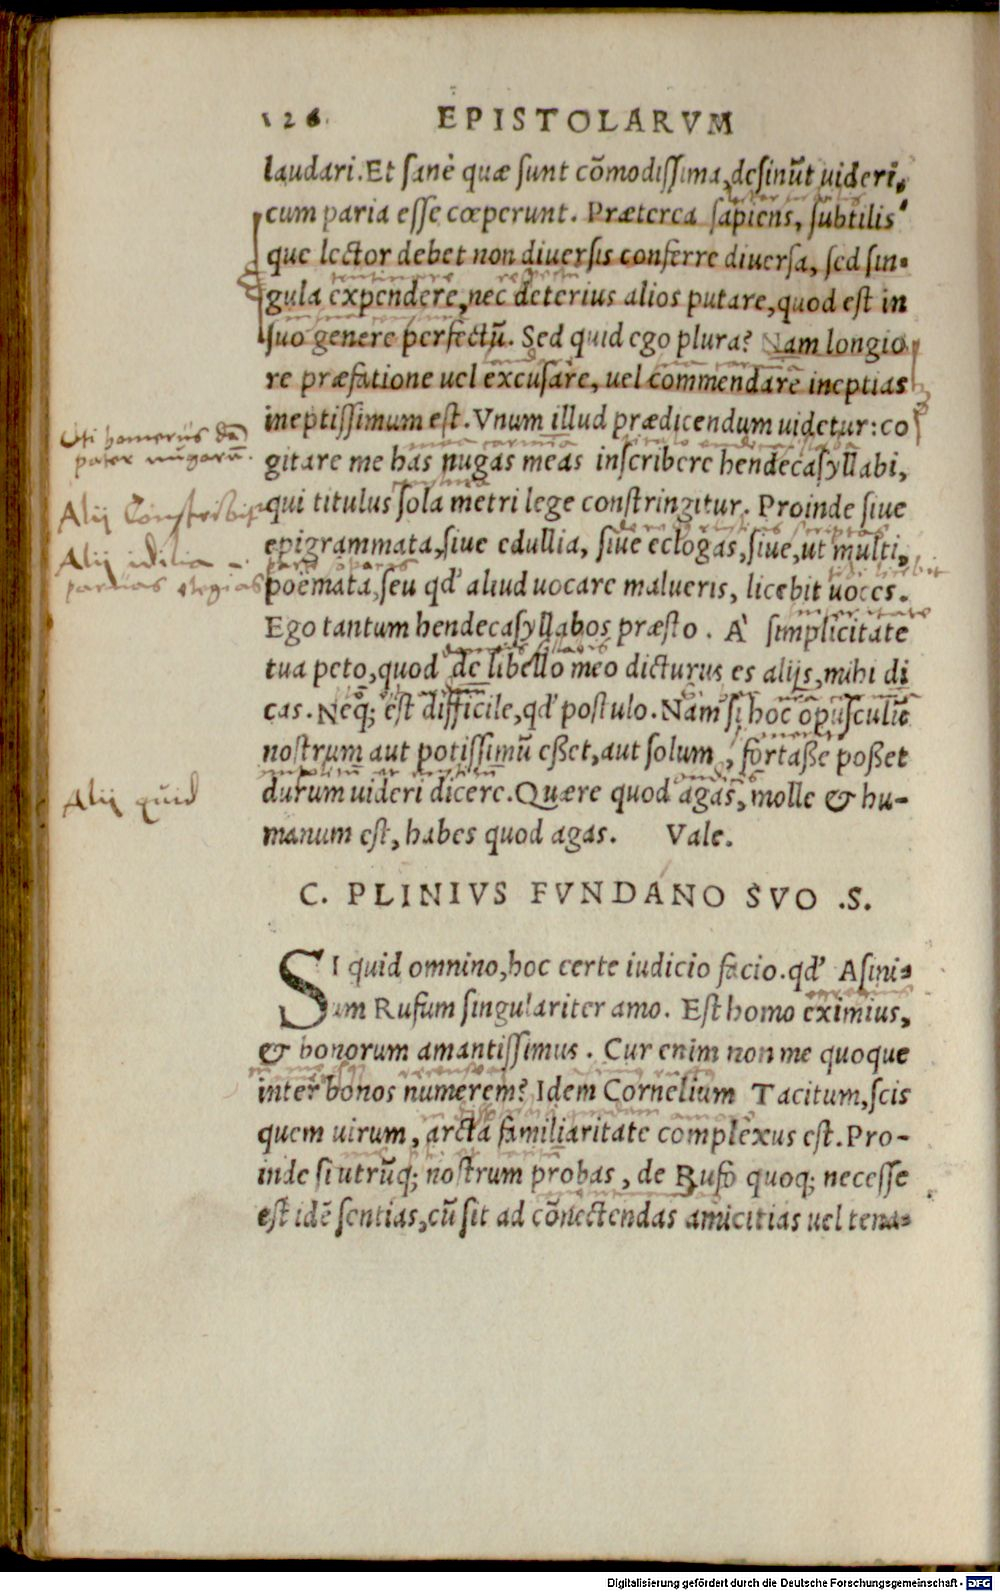 126. EPISTOLARVM
laudari. Et sanè quæ sunt cõmodissima, desinũt uideri,
cum paria esse cœperunt. Præterea sapiens, subtilis
que lector debet non diuersis conferre diuersa, sed sin-
gula expendere, nec deterius alios putare, quod est in
suo genere perfectũ. Sed quid ego plura? Nam longio
re præfatione uel excusare, uel commendare ineptias
ineptissimum est. Vnum illud prædicendum uidetur: co
gitare me has nugas meas inscribere hendecasyllabi,
qui titulus sola metri lege constringitur. Proinde siue
epigrammata, siue edullia, siue eclogas, siue, ut multi,
poëmata, seu qd' aliud uocare malueris, licebit uoces.
Ego tantum hendecasyllabos præsto. À simplicitate
tua peto, quod de libello meo dicturus es alijs, mihi di
cas. Neq; est difficile, qd' postulo. Nam si hoc opusculũ
nostrum aut potissimũ eßet, aut solum, fortaße poßet
durum uideri dicere. Quære quod agas, molle & hu-
manum est, habes quod agas. Vale.
Alij
Alij idilia
paruas elegias
Alij quid
C. PLINIVS FVNDANO SVO .S.
SI quid omnino, hoc certe iudicio facio. qd' Asini-
um Rufum singulariter amo. Est homo eximius,
& bonorum amantissimus. Cur enim non me quoque
inter bonos numerem? Idem Cornelium Tacitum, scis
quem uirum, arcta familiaritate complexus est. Pro-
inde si utrũq; nostrum probas, de Rufo quoq; necesse
est idẽ sentias, cũ sit ad cõnectendas amicitias uel tena-
Digitalisierung gefördert durch die Deutsche Forschungsgemeinschaft - DFG